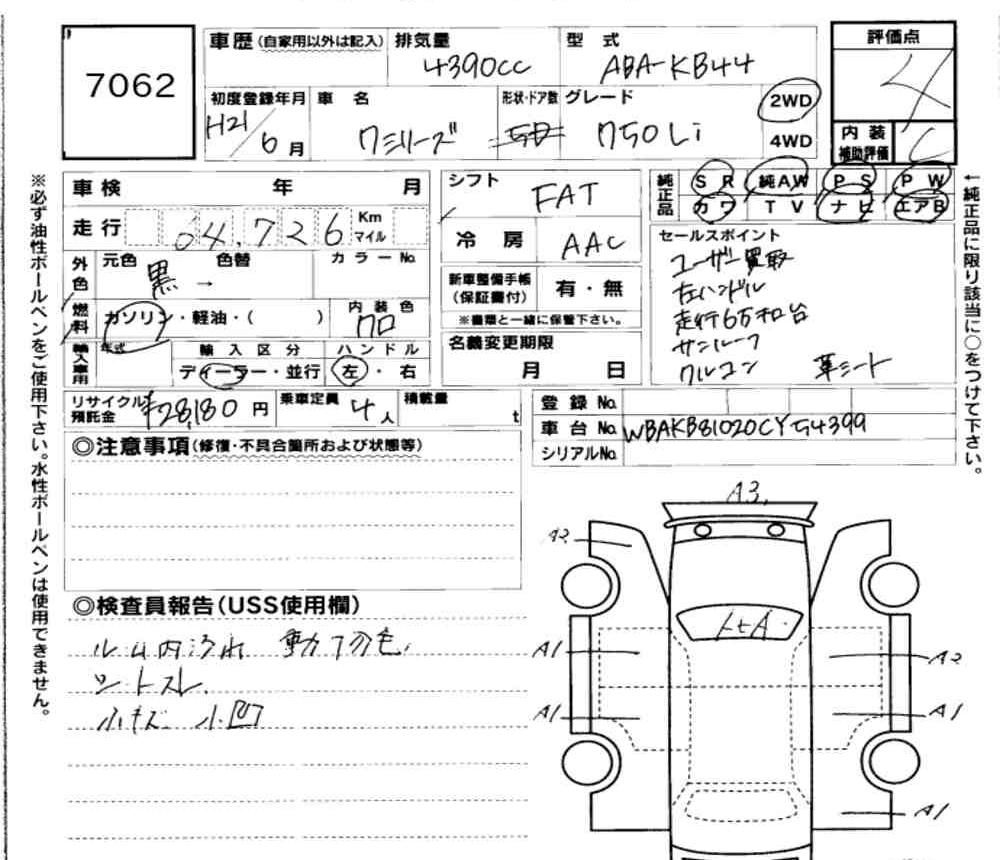 7062
車歴(自家用以外は記入)
排気量
4390CC
型式
ABA-KB44
評価点
4
初度登録年月
H21/6月
車名
7シリーズ
形状・ドア数
5D
グレード
750Li
2WD
4WD
内装
補助評価
C
車検 年 月
走行 04,726 Km マイル
外色
元色 黒→ 色替 カラーNo.
燃料
ガソリン・軽油・( )
内装色
クロ
輸入車用
年式
輸入区分
ディーラー・並行
ハンドル
左・右
シフト
FAT
冷房 AAC
新車整備手帳
(保証書付)
有・無
※書類と一緒に保管下さい。
名義変更期限
月 日
純正品
SR 純AW PS PW
カワ TV ナビ エアB
セールスポイント
ユーザー買取
左ハンドル
走行6万和台
サンルーフ
クルコン 革シート
リサイクル預託金 ¥28,180円
乗車定員 4人
積載量 t
登録No.
車台No. WBAKB81020CY54399
シリアルNo.
◎注意事項(修復・不具合箇所および状態等)
◎検査員報告(USS使用欄)
シートスレ
小キズ 小凹
A3
A2
A1
A2
A1
A1
A1
※必ず油性ボールペンをご使用下さい。水性ボールペンは使用できません。
←純正品に限り該当に○をつけて下さい。